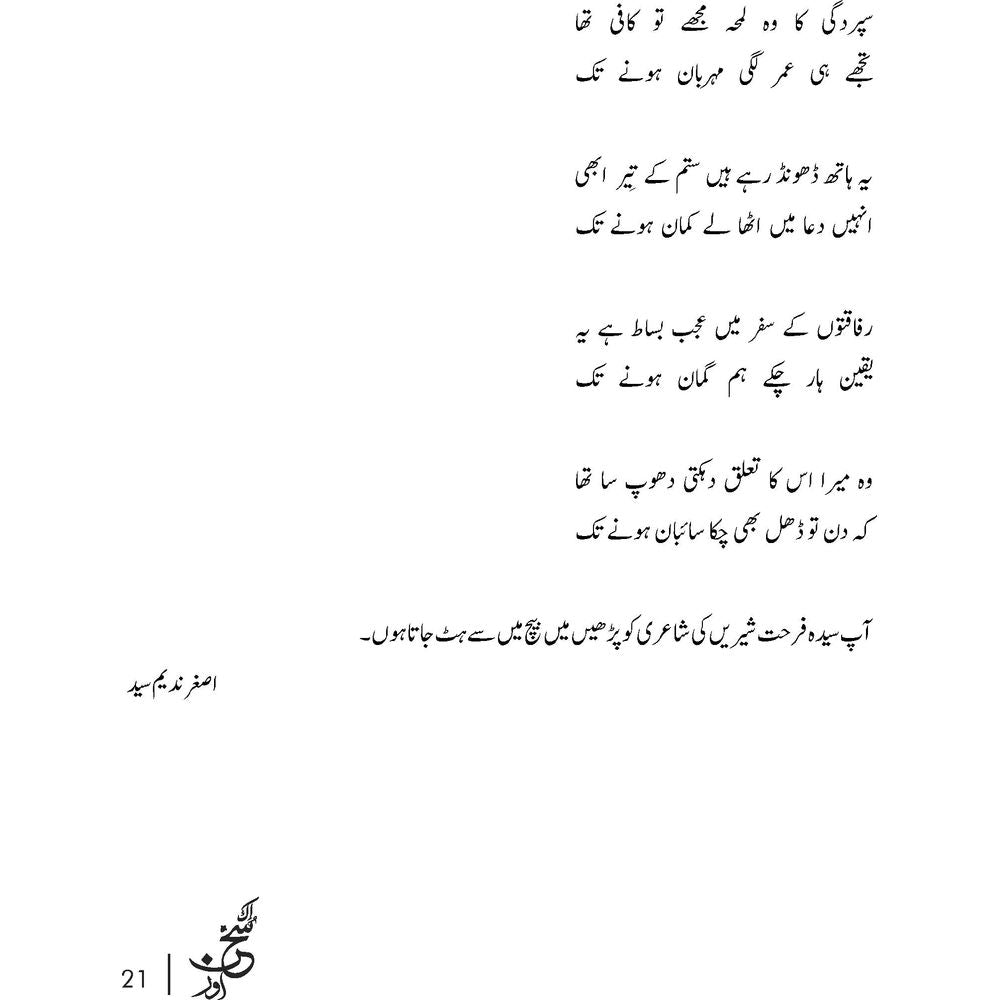 سپردگی کا وہ لمحہ مجھے تو کافی تھا
تجھے ہی عمر لگی مہربان ہونے تک
یہ ہاتھ ڈھونڈ رہے ہیں ستم کے تِیر ابھی
انہیں دعا میں اٹھا لے کمان ہونے تک
رفاقتوں کے سفر میں عجب بساط ہے یہ
یقین ہار چکے ہم گمان ہونے تک
وہ میرا اس کا تعلق دہکتی دھوپ سا تھا
کہ دن تو ڈھل بھی چکا سائبان ہونے تک
آپ سیدہ فرحت شیریں کی شاعری کو پڑھیں میں بیچ میں سے ہٹ جاتا ہوں۔
اصغر ندیم سید
اک سخن اور
21